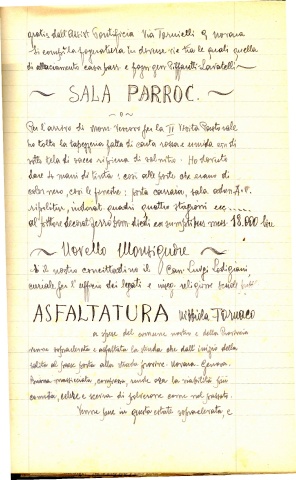 gratis dall'Assist. Pontificia Via Tornielli 9 Novara
Si compì la fognatura in diverse vie tra le quali quella
di allacciamento casa parr. e fogn.
~ SALA PARROC. ~
Per l'arrivo di Mons. Vescovo per la II Visita Pastorale
ho tolto la tapezzeria fatta di carta rossa e umida con di
sotto tela di sacco ripiena di salnitro. Ho dovuto
dare 4 mani di tinta: così alle porte che erano di
color nero, così le finestre: porta carraia, sala
ripulitura, indorat. quadri quattro stagioni ecc.....
al pittore decorat. 18.000 lire
~ Novello Monsignore ~
È il nostro concittadino il Can. Luigi Lodigiani
curiale per l'ufficio dei legati e
ASFALTATURA Nibbiola Terniaco
a spese del comune nostro e della Provincia
venne sopraelevata e asfaltata la strada che dall'inizio della
salita al paese porta alla strada provinc. Novara Genova.
Prima massicciata, compressa, rende ora la viabilità più
comoda, celere e scevra di polverone come nel passato.
Venne pure in questa estate sopraelevata, e